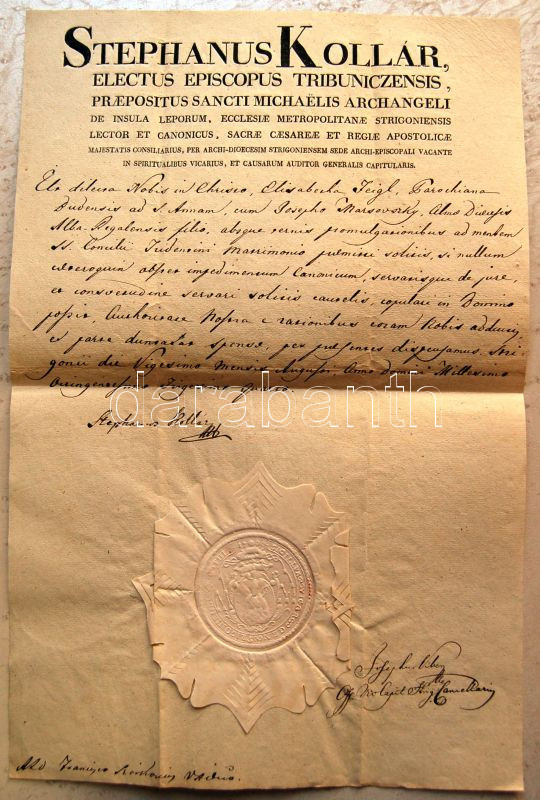 STEPHANUS KOLLÁR,
ELECTUS EPISCOPUS TRIBUNICZENSIS,
PRÆPOSITUS SANCTI MICHAËLIS ARCHANGELI
DE INSULA LEPORUM, ECCLESIÆ METROPOLITANÆ STRIGONIENSIS
LECTOR ET CANONICUS, SACRÆ CÆSAREÆ ET REGIÆ APOSTOLICÆ
MAJESTATIS CONSILIARIUS, PER ARCHI-DIOECESIM STRIGONIENSEM SEDE ARCHI-EPISCOPALI VACANTE
IN SPIRITUALIBUS VICARIUS, ET CAUSARUM AUDITOR GENERALIS CAPITULARIS.
dilecta Nobis in Christo, Elisabetha Feigl, Parochiana
Budensis ad S. Annam, cum Josepho Marsovszky, Almæ Diœcesis
Alba Regalensis filio, absque ternis promulgationibus ad mentem
SS. Concilii Tridentini Matrimonio præmitti solitis, si nullum
alteroquin obstet impedimentum Canonicum, servatisque de jure,
et consvetudine servari solitis cautelis, copulari in Domino
possit, Authoritate Nostra e rationibus coram Nobis adductis
ex parte duntaxat sponsæ, per præsentes dispensamus. Stri-
gonii die Vigesimo Mensis Augusti, Anno Domini Millesimo
Octingentesimo Trigesimo Quarto.
darabanth
Stephanus Kollár
Josephus
Cancellarius
Francisco viduo.